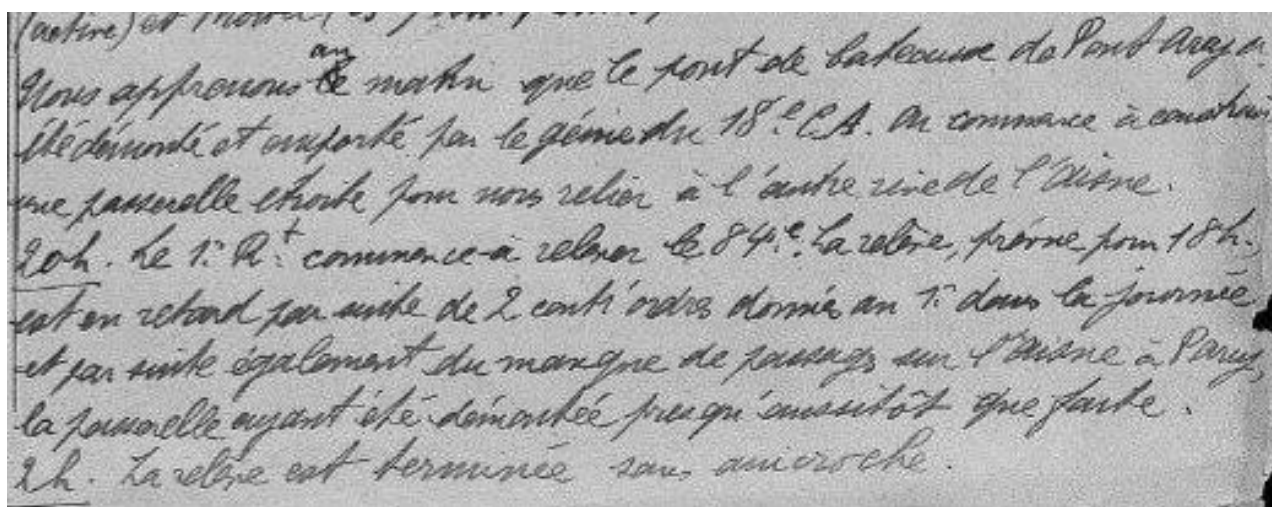 (active) et
Nous apprenons au matin que le pont de bateaux de Pont Arcy a
été démonté et emporté par le génie du 18e C.A. On commence à construire
une passerelle etroite pour nous relier à l'autre rive de l'Aisne.
20h. Le 1er Rt commence à relever le 84e. La relève, prévue pour 18h.
est en retard par suite de 2 contr'ordres donnés au 1er dans la journée
et par suite également du manque de passages sur l'Aisne à Parcy,
la passerelle ayant été démontée presqu'aussitôt que faite.
2h. La relève est terminée sans anicroche.